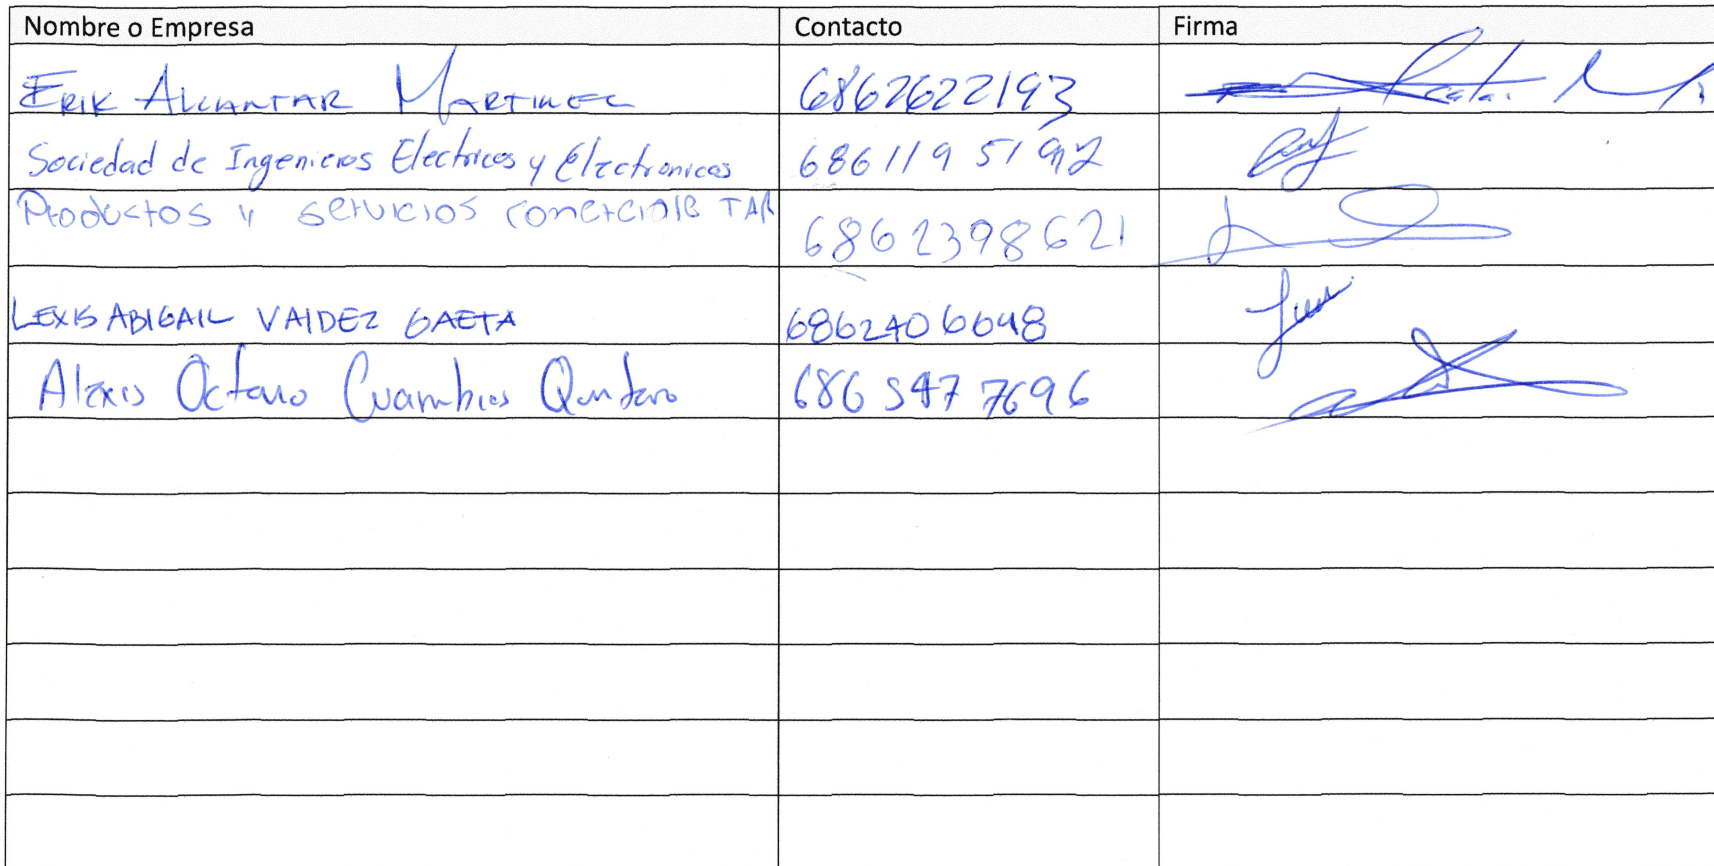 Nombre o Empresa Contacto Firma
ERIK ALCANTAR MARTINEZ 6862622193
Sociedad de Ingenieros Electricos y Electronicos 686 119 51 92
Productos y servicios comerciale TAR 6862398621
LEXIS ABIGAIL VAlDEZ GAETA 6862406648
Alexis Octavo Cuambios Quntero 686 547 7696